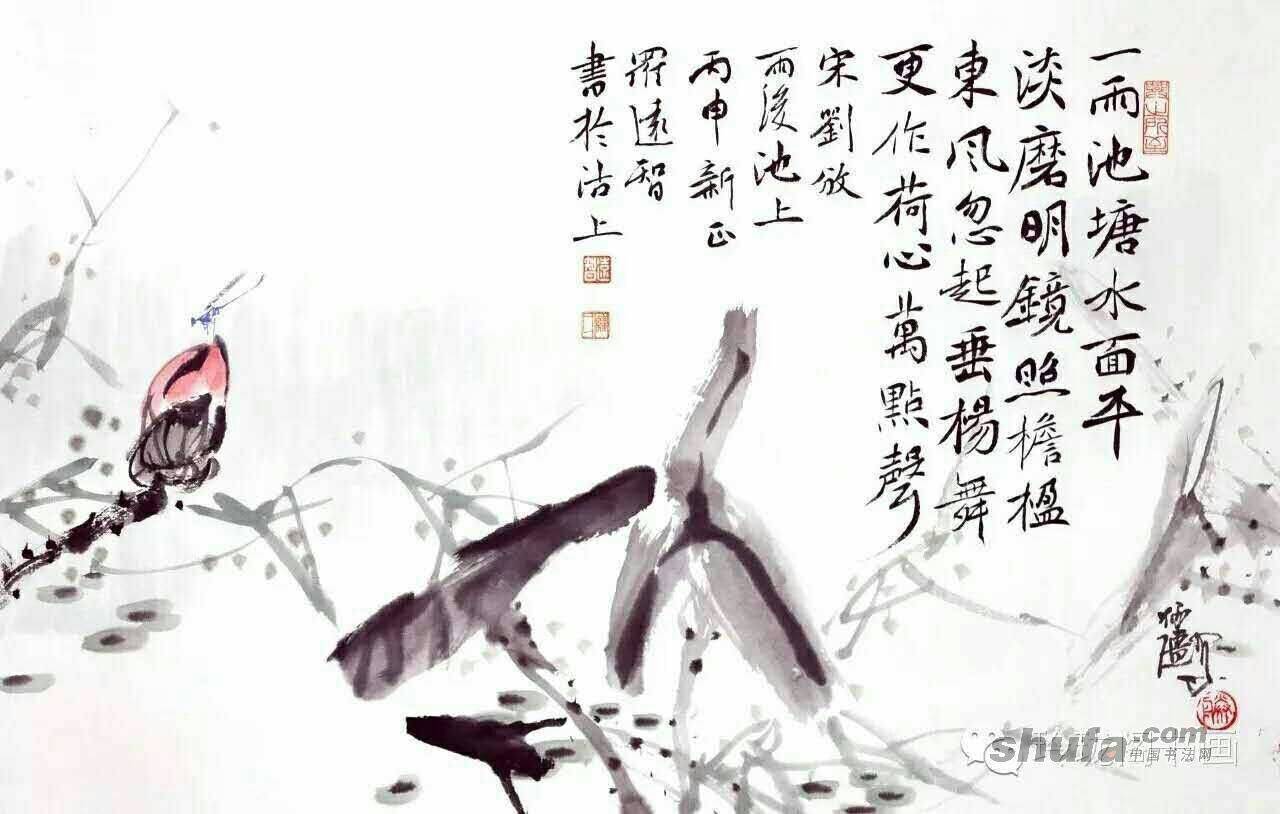 一雨池塘水面平
淡磨明鏡照檐楹
東風忽起垂楊舞
更作荷心萬點聲
宋劉攽
雨後池上
丙申新正
羅遠智
書於沽上
遠智
shufa.com
中国书法网